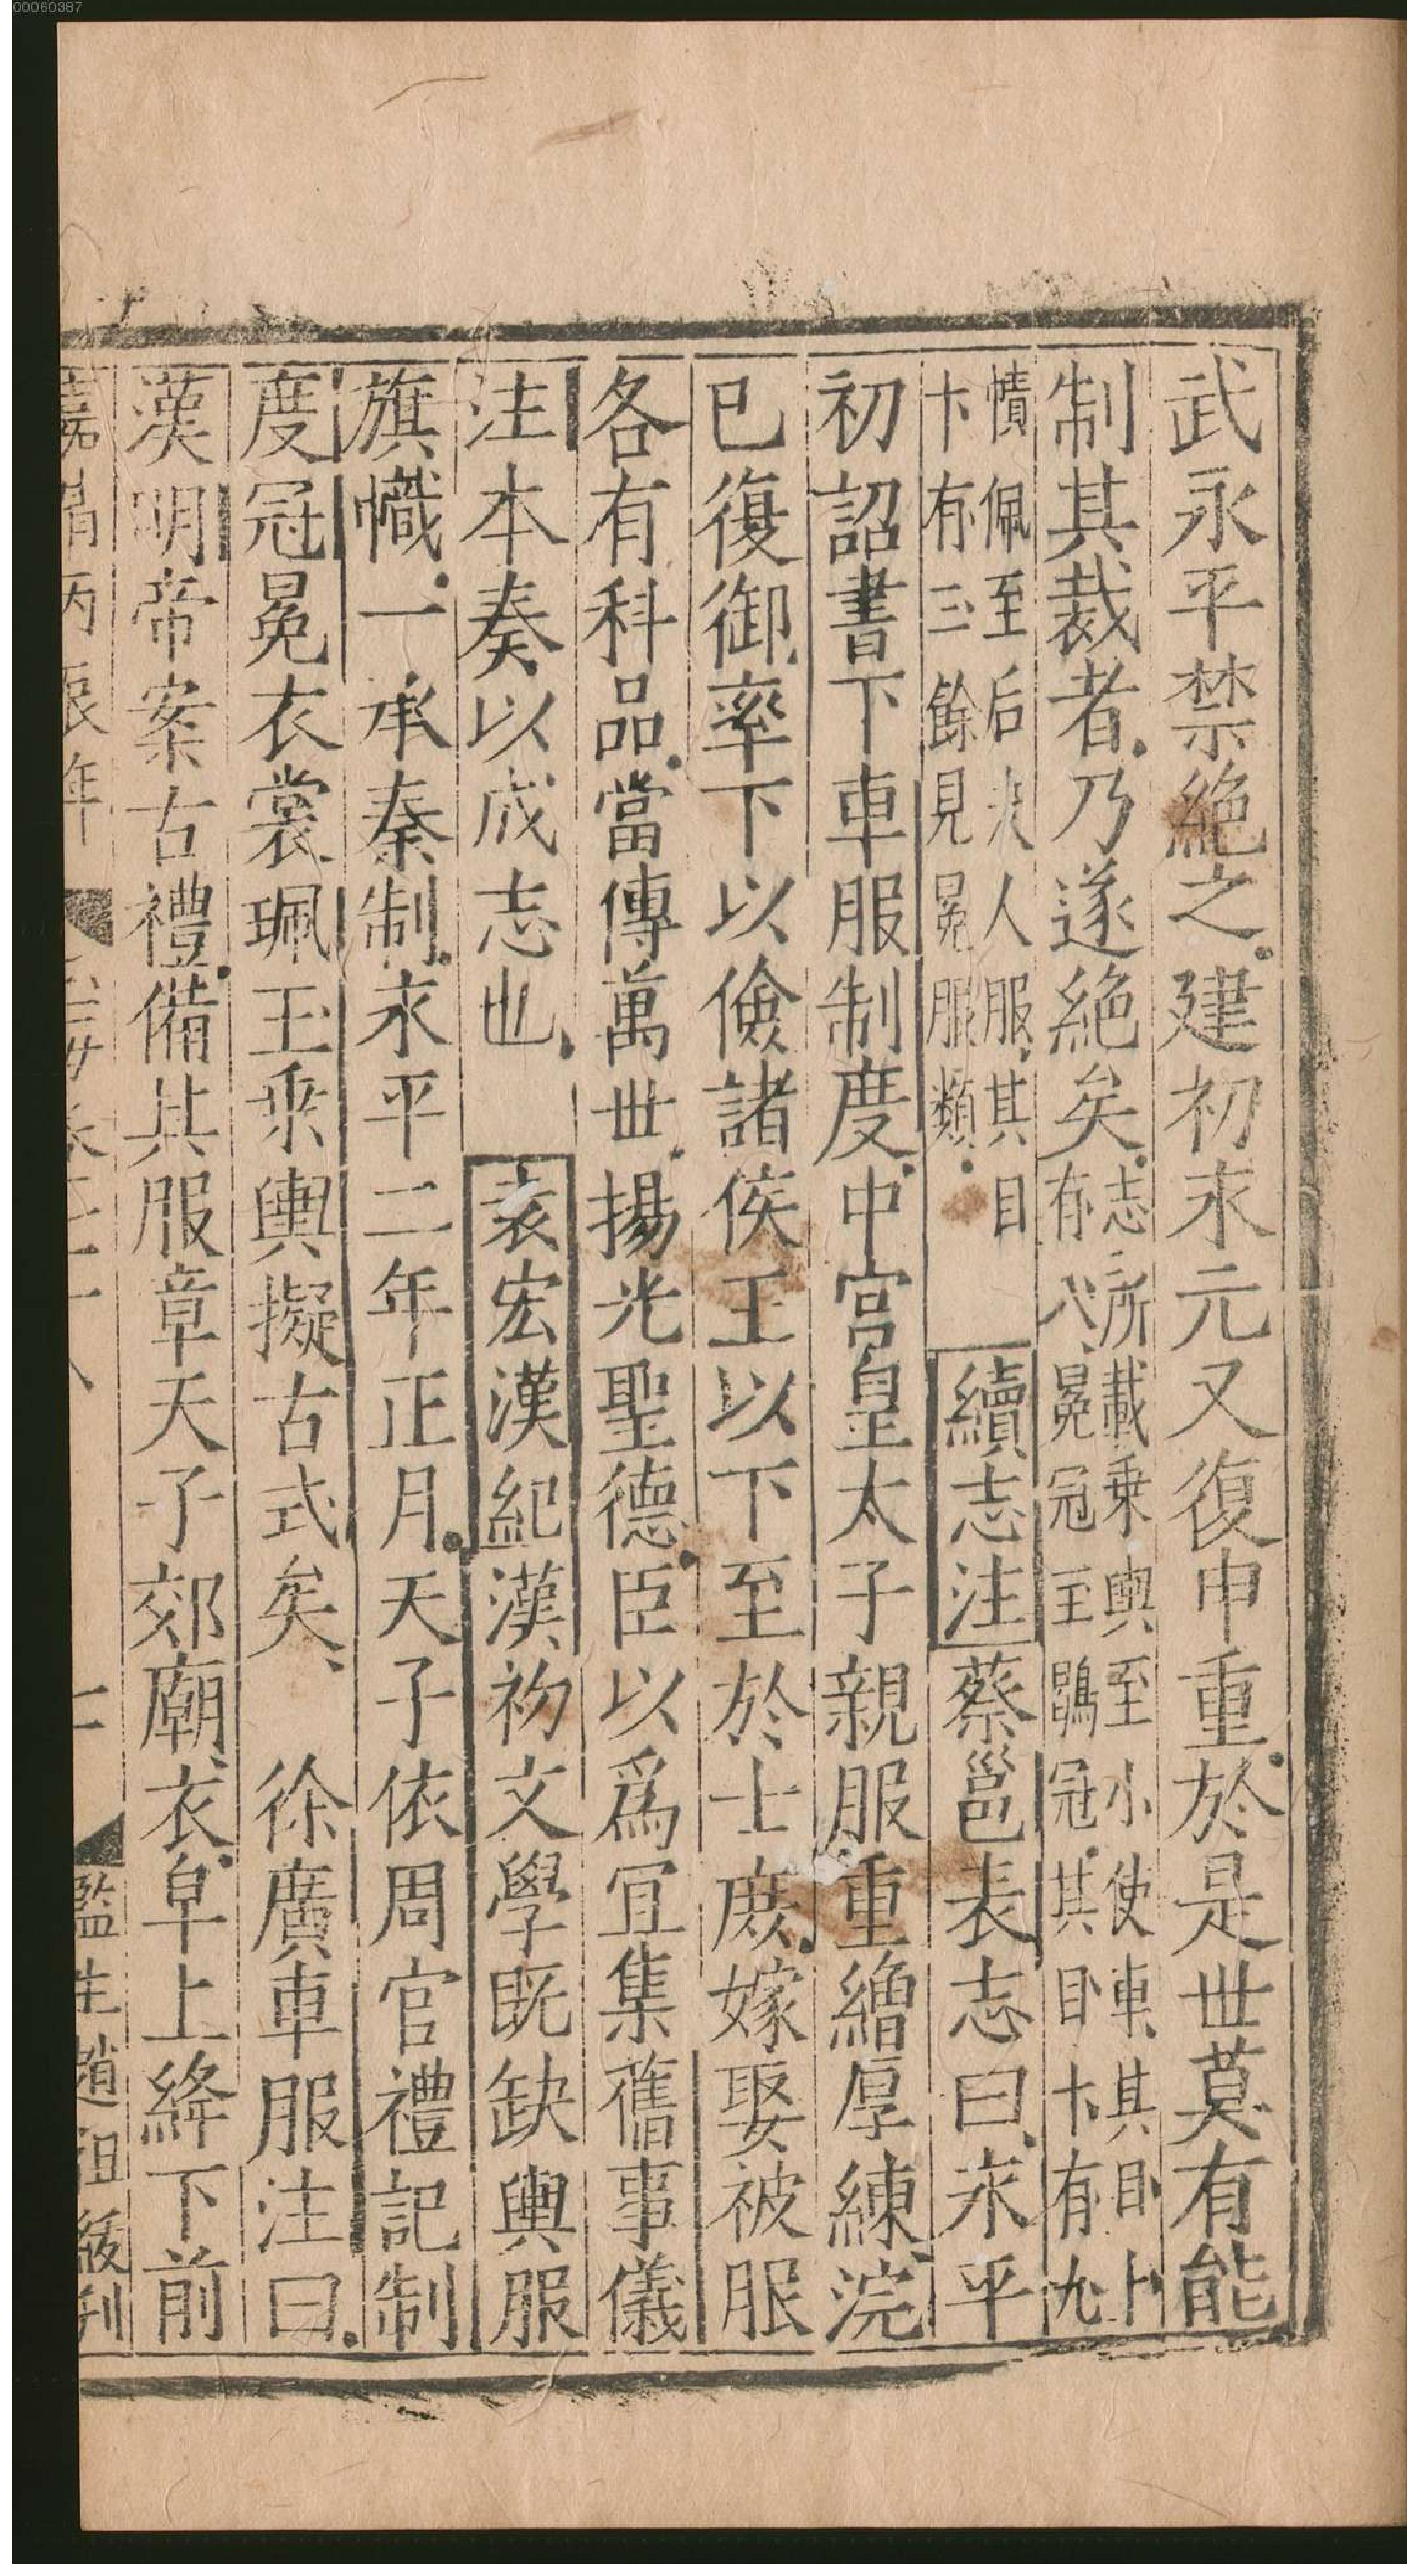 00060387
武永平禁絶之建初永元又復申重於是世莫有能
制其裁者乃遂絶矣志所載乗輿至小使車其目卜
有八冕冠至鶡冠其目卞有九
幘佩至后夫人服其目
卞有三餘見冕服類 續志注蔡邕表志曰永平
初詔書下車服制度中宫皇太子親服重繒厚練浣
已復御率下以儉諸侯王以下至於士庶嫁娶被服
各有科品當傳萬世揚光聖德臣以爲宜集舊事儀
注本奏以成志也 袁宏漢紀漢初文學既缺輿服
旗幟一承秦制永平二年正月天子依周官禮記制
度冠冕衣裳珮玉乘輿擬古式矣 徐廣車服注曰
漢明帝案古禮備其服章天子郊廟衣皁上絳下前
監生趙